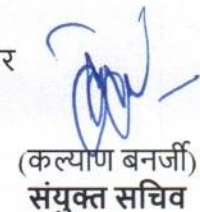 र
(कल्याण बनर्जी)
संयुक्त सचिव